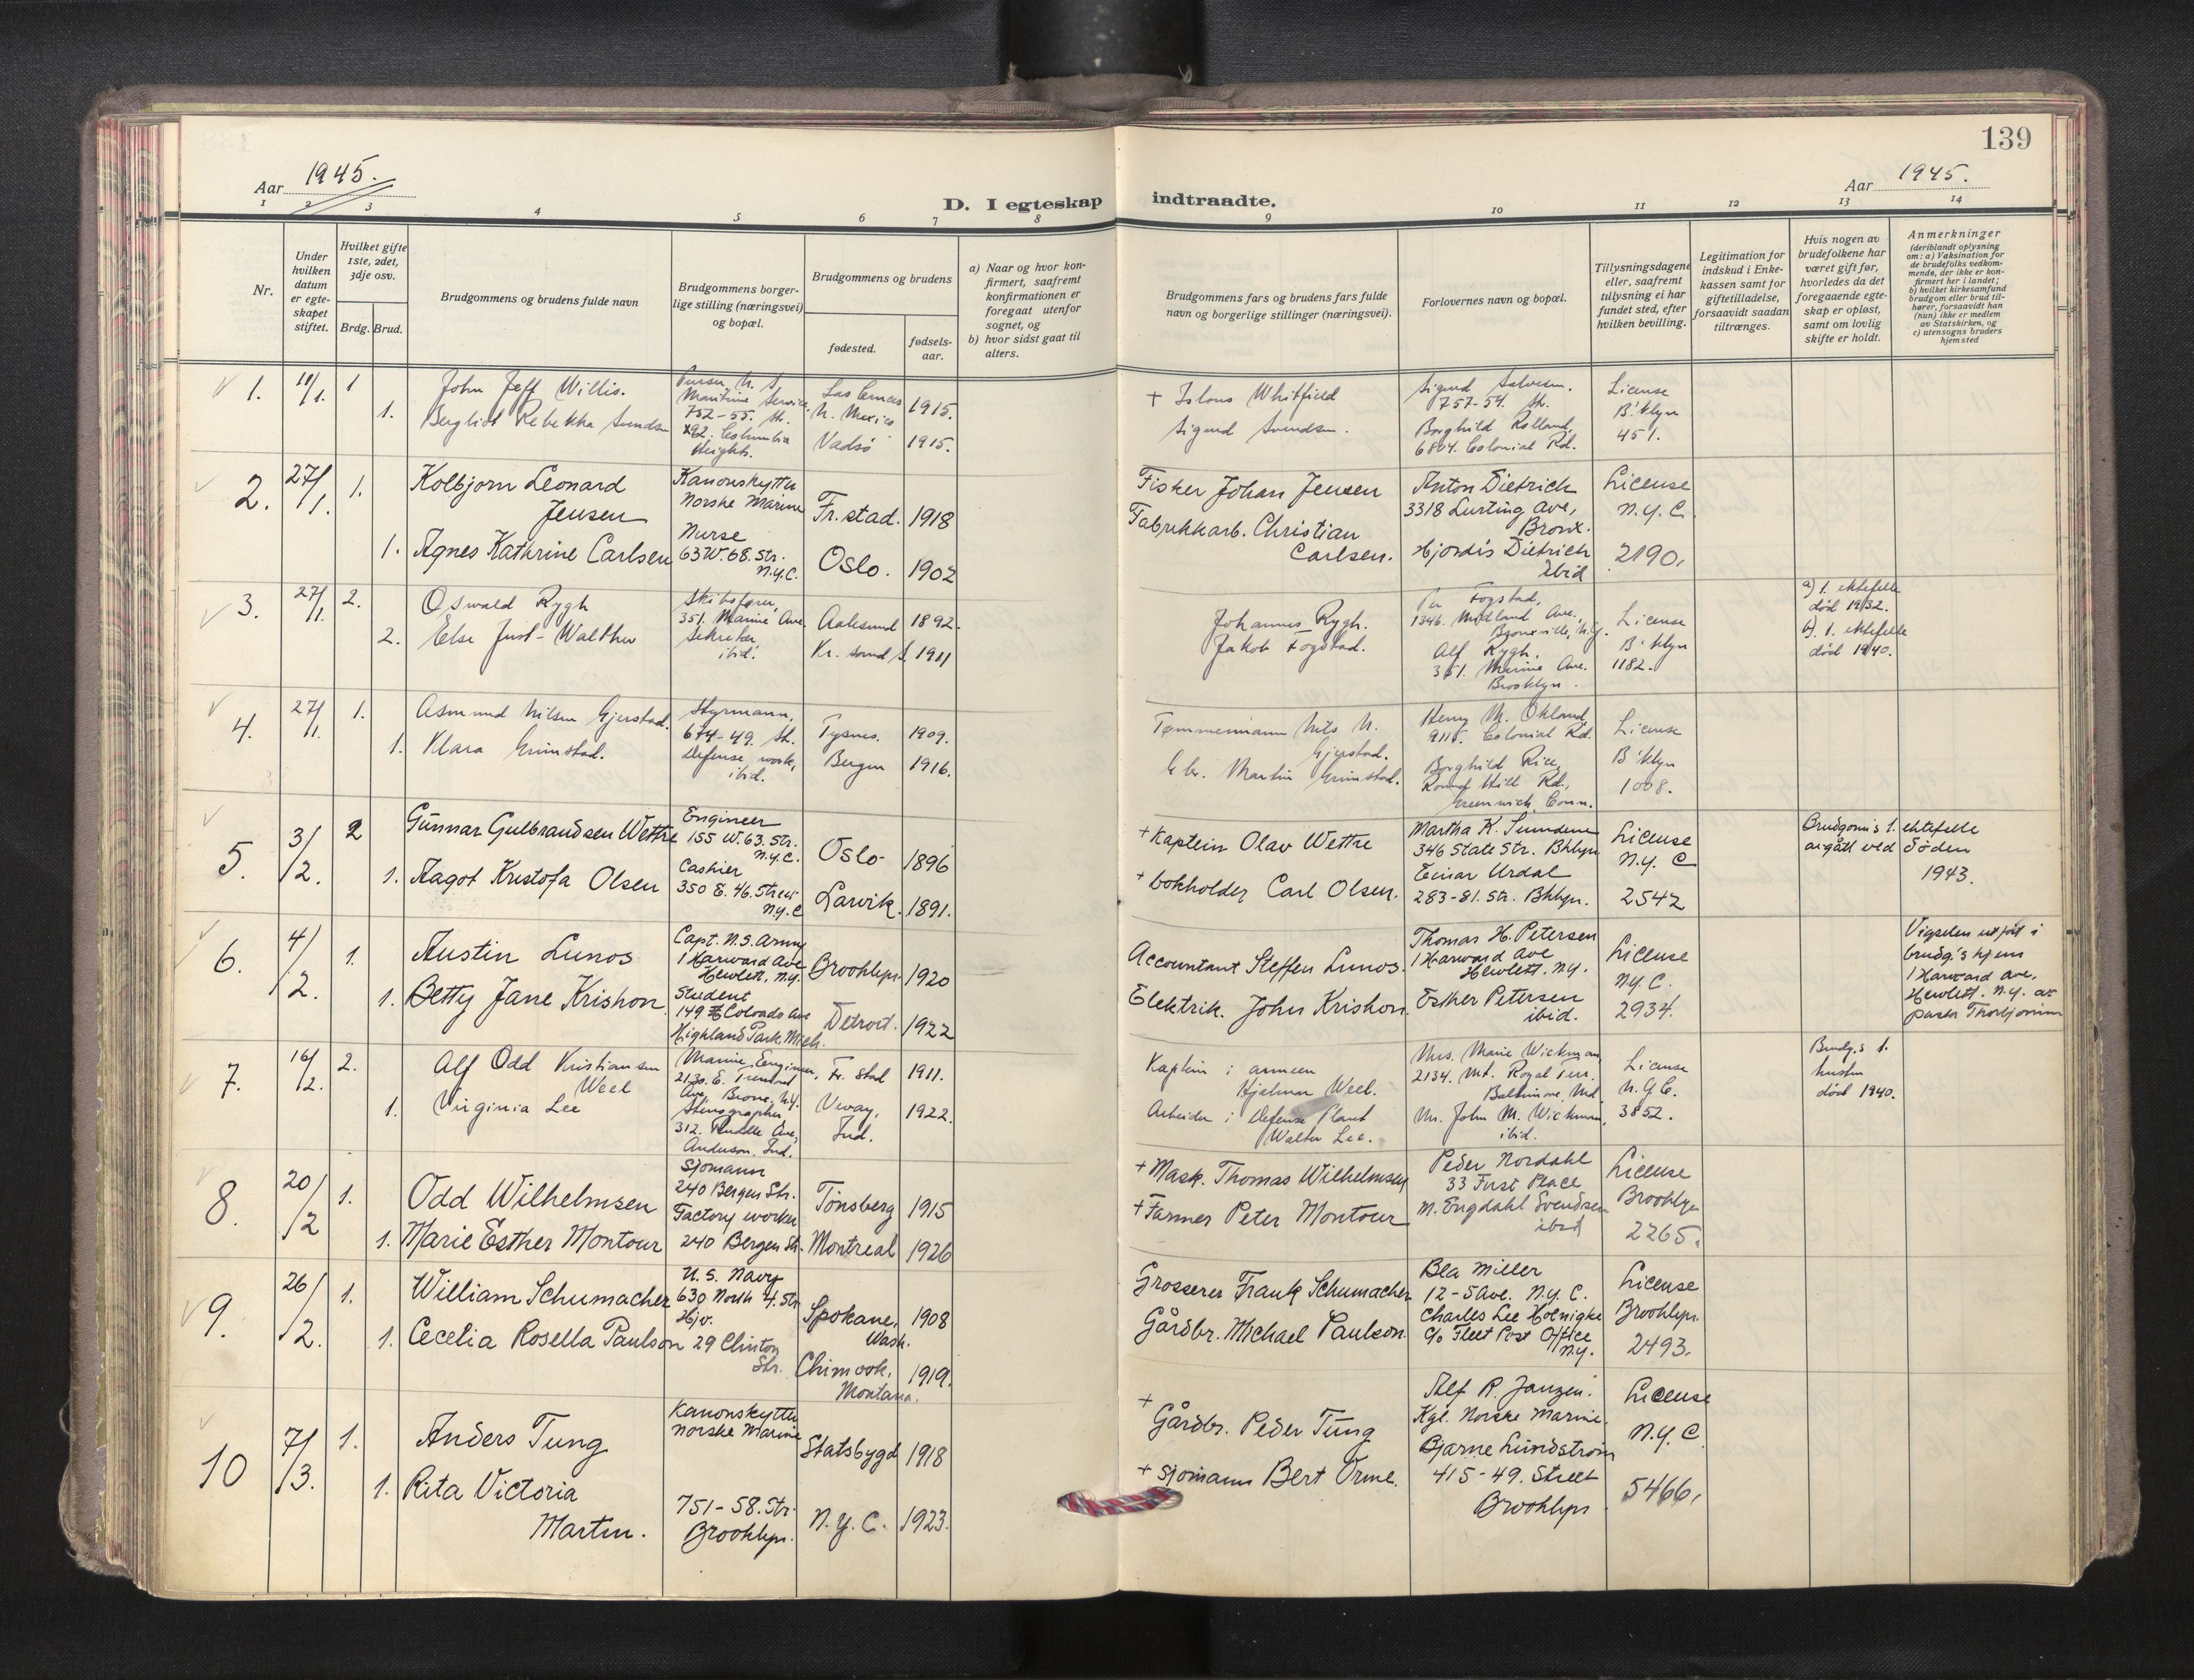 139
Aar 1945.
Aar 1945.
D. I egteskap indtraadte.
1 2 3 4 5 6 7 8 9 10 11 12 13 14
Nr.
Under
hvilken
datum
er egte-
skapet
stiftet.
Hvilket gifte
1ste, 2det,
3dje osv.
Brdg. Brud.
Brudgommens og brudens fulde navn
Brudgommens borger-
lige stilling (næringsvei)
og bopæl.
Brudgommens og brudens
fødested.
fødsels-
aar.
a) Naar og hvor kon-
firmert, saafremt
konfirmationen er
foregaat utenfor
sognet, og
b) hvor sidst gaat til
alters.
Brudgommens fars og brudens fars fulde
navn og borgerlige stillinger (næringsvei).
Forlovernes navn og bopæl.
Tillysningsdagene
eller, saafremt
tillysning ei har
fundet sted, efter
hvilken bevilling.
Legitimation for
indskud i Enke-
kassen samt for
giftetilladelse,
forsaavidt saadan
tiltrænges.
Hvis nogen av
brudefolkene har
været gift før,
hvorledes da det
foregaaende egte-
skap er opløst,
samt om lovlig
skifte er holdt.
Anmerkninger
(deriblandt oplysning
om: a) Vaksination for
de brudefolks vedkom-
mende, der ikke er kon-
firmert her i landet;
b) hvilket kirkesamfund
brudgom eller brud til-
hører, forsaavidt han
(hun) ikke er medlem
av Statskirken, og
c) utensogns bruders
hjemsted
1. 1
John Jeff Willis.
1. Bergliot Rebekka Svendsen
Purser U. S.
Maritime Service,
752-55. St.
Columbia
Heights.
Las Cruces
N. Mexico 1915.
Vadsø 1915.
+ Whitfield
Sigurd Svendsen.
Sigurd Salvesen.
757-54. St.
Borghild Rolland,
6804. Colonial Rd.
License
B'klyn
451.
2. 27/1. 1.
Kolbjorn Leonard
Jensen
1. Agnes Kathrine Carlsen
Kanonskytter
Norske Marine
Nurse
63 W. 68. Str.
N.Y.C.
Fr.stad. 1918
Oslo. 1902
Fisker Johan Jensen
Fabrikkarb. Christian
Carlsen.
Anton Dietrich
3318 Lurting Ave,
Bronx.
Hjordis Dietrich
ibid
License
N.Y.C.
2190.
3. 27/1. 2.
Oswald Rygh
2. Else Just-Walther
Skibsfører,
351. Marine Ave.
Sekretær
ibid.
Aalesund 1892.
Kr. sund S. 1911
Johannes Rygh.
Jakob Fogstad.
Per Fogstad,
1346. Midland Ave.,
Bronxville, N.Y.
Alf Rygh,
351. Marine Ave.
Brooklyn.
License
B'klyn
1182.
a) 1. ektefelle
død 1932.
b). 1. ektefelle
død 1940.
4. 27/1. 1.
Asmund Nilsen Gjerstad.
1. Klara Grimstad.
Styrmann,
674-49. St.
Defense work,
ibid.
Tysnes. 1909.
Bergen 1916.
Tømmermann Nils N.
Gjerstad.
Gbr. Martin Grimstad.
Henry M. Økland,
9115. Colonial Rd.
Borghild Rice,
Round Hill Rd.,
Greenwich, Conn.
License
B'klyn
1008.
5. 3/2. 2
Gunnar Gulbrandsen Wettre
1. Aagot Kristofa Olsen
Engineer
155 W. 63. Str.
N.Y.C.
Cashier
350 E. 46. Street
N.Y.C
Oslo 1896
Larvik. 1891.
+ Kaptein Olav Wettre
+ bokholder Carl Olsen.
Martha K.
346 State Str. Bklyn
Einar Urdal
283-81. Str. Bklyn.
License
N.Y. C
2542
Brudgoms 1. ektefelle
avgått ved døden
1943.
6. 4/2. 1.
Austin Lunos
1. Betty Jane Krishon
Capt. U.S. Army
1 Harward Ave
Hewlett, N.Y.
Student
149 Colorado Ave
Highland Park, Mich.
Brooklyn. 1920
Detroit. 1922
Accountant Steffen Lunos.
Elektrik. John Krishon.
Thomas H. Petersen
1 Harward Ave
Hewlett, N.Y.
Esther Petersen
ibid.
License
N.Y.C.
2934.
Vigselen utført i
brudg.'s hjem
1 Harward ave.
Hewlett. N.Y. av
pastor Thorbjornsen
7. 16/2. 2.
Alf Odd Kristiansen
Weel
1. Virginia Lee
Marine Engineer,
2130. E. Tremont
Ave, Bronx, N.Y.
Stenographer
312. Ave,
Anderson, Ind.
Fr. stad 1911.
Vevay,
Ind. 1922.
Kaptein i armeen
Hjalmar Weel.
Arbeider i Defense Plant
Walter Lee.
Mrs. Marie Wickman,
2134. Mt. Royal Terr.
Baltimore, Md.
Mr. John M. Wickman,
ibid.
License
N.Y.C.
3852.
Brudg.s 1.
hustru
død 1940.
8. 20/2 1.
Odd Wilhelmsen
1. Marie Esther Montour
Sjomann
240 Bergen Str.
Factory worker
240 Bergen St.
Tonsberg 1915
Montreal 1926
+ Mask. Thomas Wilhelmsen
+ Farmer Peter Montour
Peder Nordahl
33 First Place
M. Engdahl Svendsen
ibid
License
Brooklyn
2265.
9. 26/2. 1.
William Schumacher
1. Cecelia Rosella Paulson
U. S. Navy
630 North 4. Str
Hjv.
29 Clinton
Str.
Spokane,
Wash. 1908
Chinook,
Montana. 1919.
Grosserer Frank Schumacher
Gårdbr. Michael Paulson
Bea Miller
12-5 Ave. N.Y.C.
Charles Lee Hoenigke
c/o Fleet Post Office
N.Y.
License
Brooklyn.
2493.
10 7/3. 1.
Anders Tung
1. Rita Victoria
Martin.
Kanonskytter
Norske Marine
751-58. Str.
Brooklyn.
Statsbygd 1918
N.Y.C. 1923.
+
Gårdbr. Peder Tung
+ sjomann Bert Orme.
Alf R. Janzen.
Kgl. Norske Marine.
Bjarne Lundstrom
415-49. Street
Brooklyn
License
N.Y.C
5466.